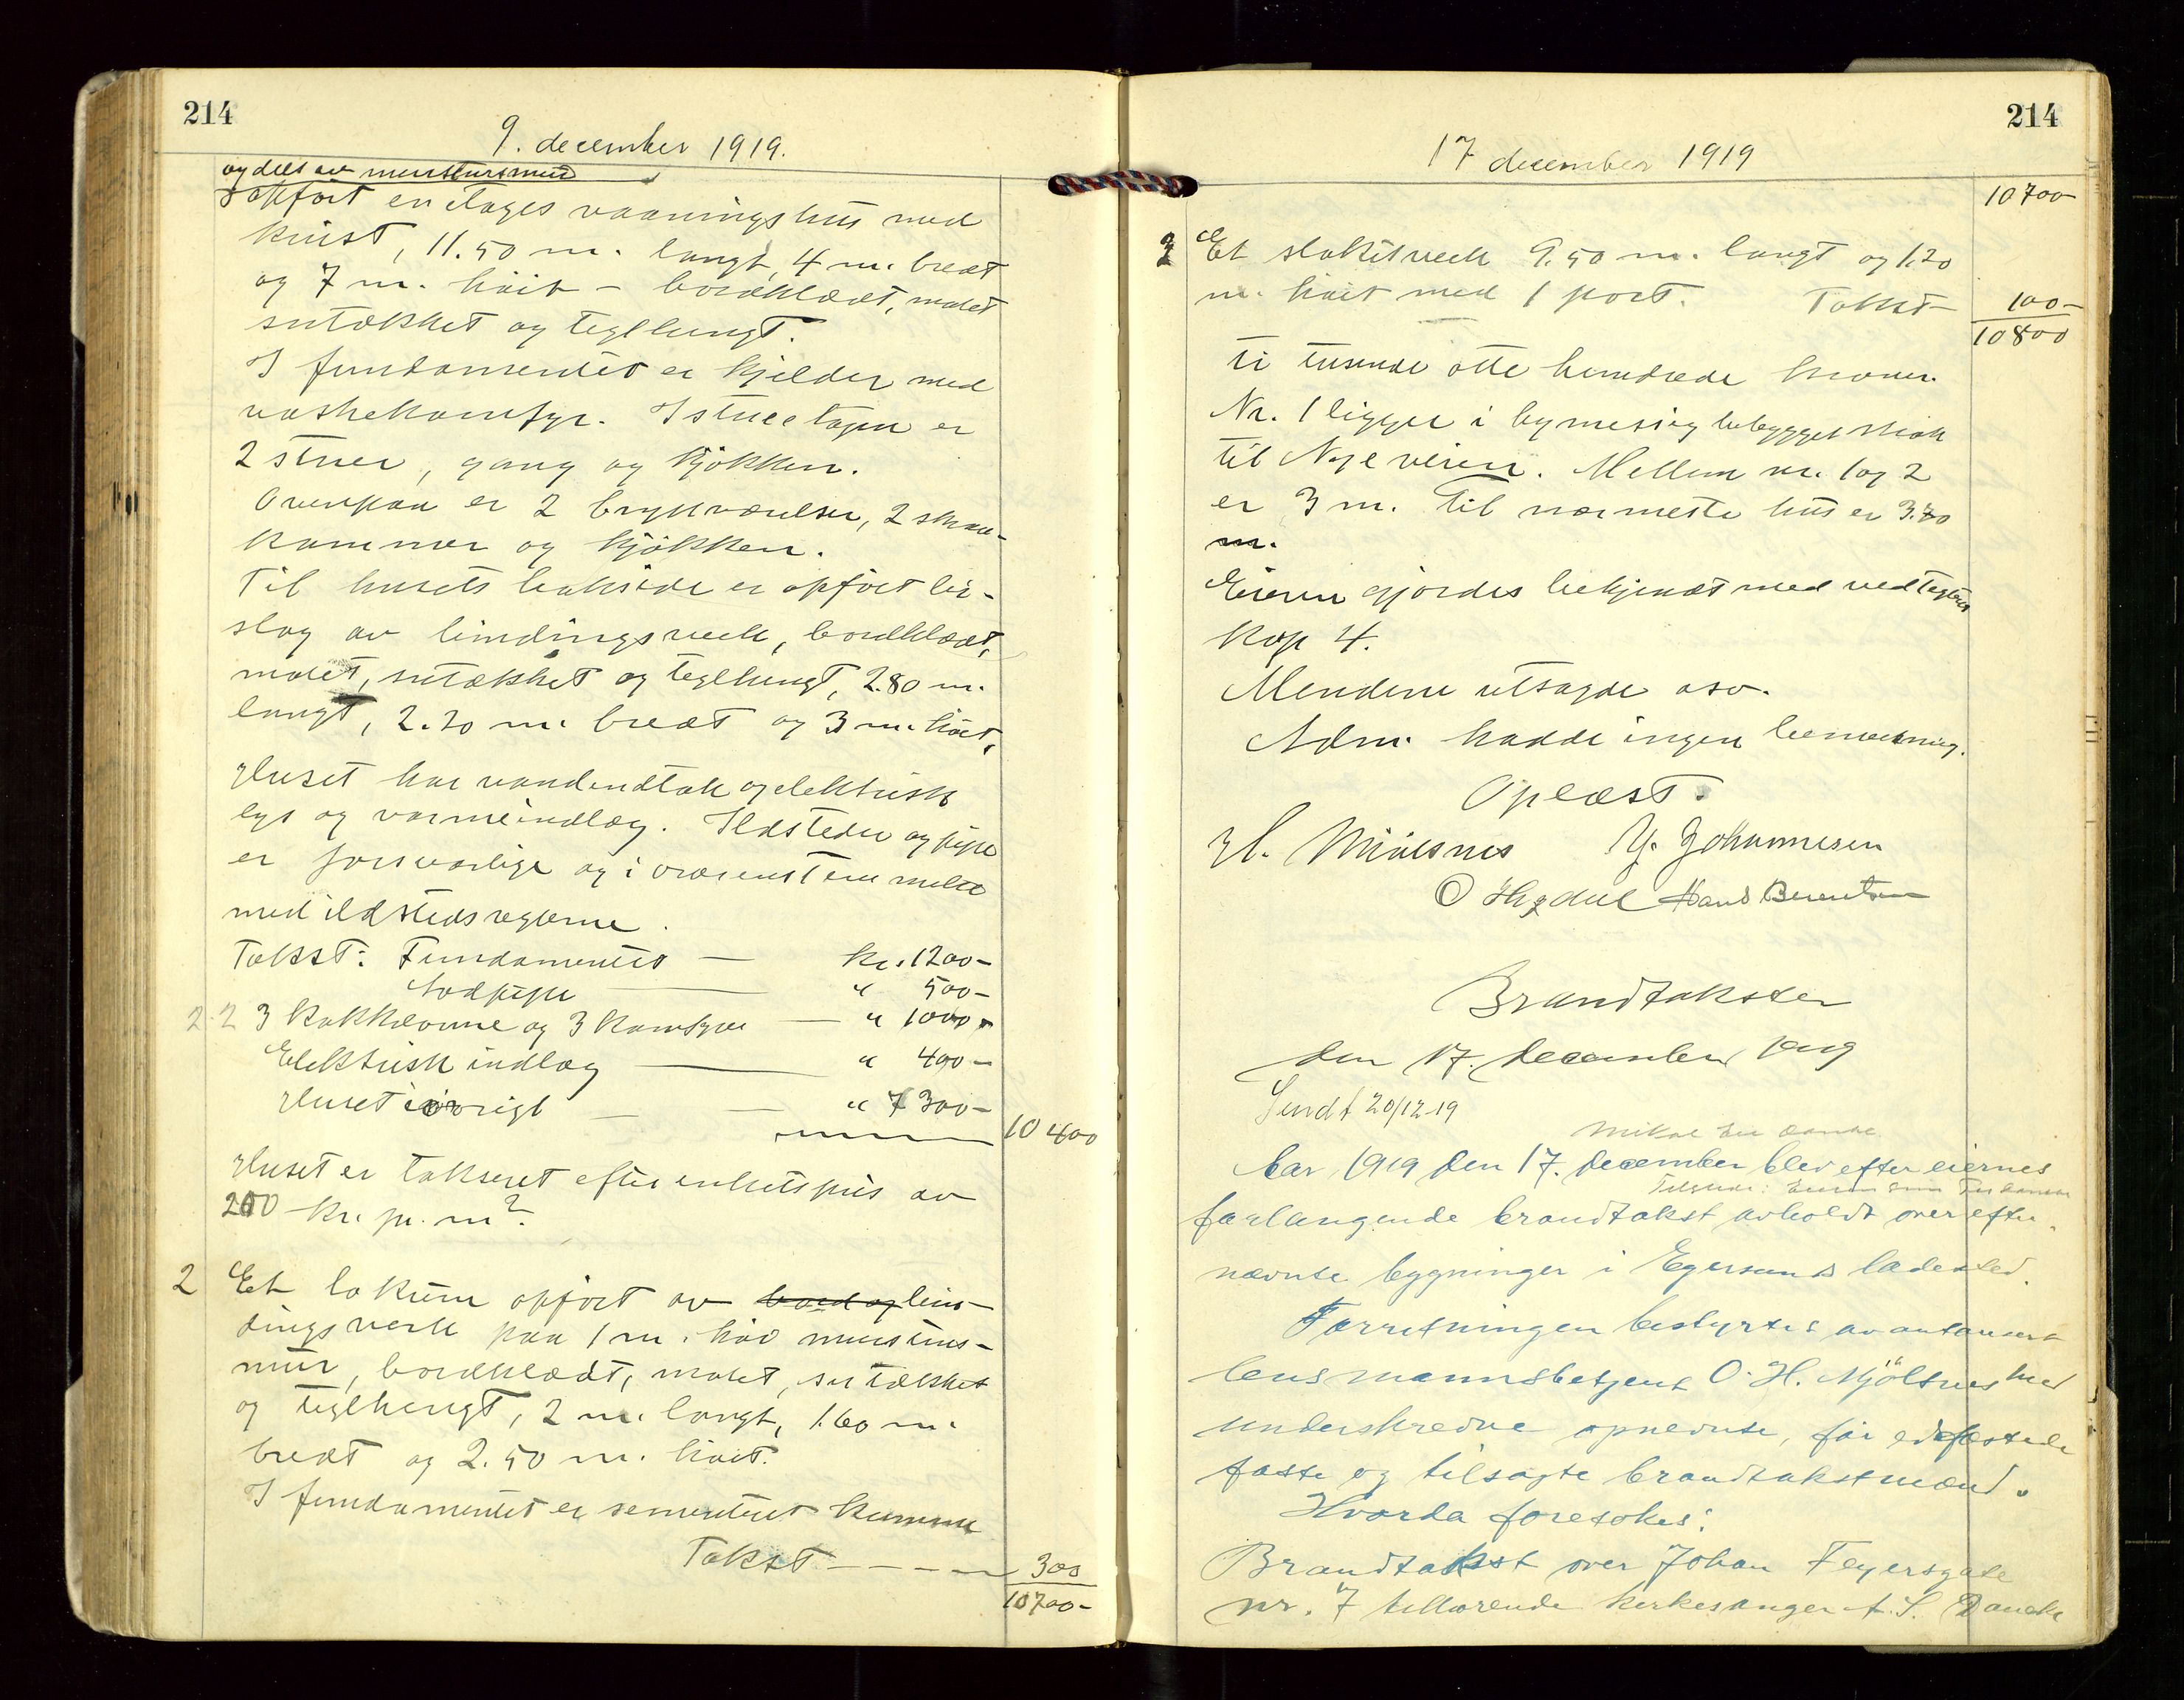 214
9. december 1919.
og dels av murstensmur
opført en etages vaaningshus med
kvist, 11.50 m. langt, 4 m. bredt
og 7 m. høit – bordklædt, malet
sutækket og teglhengt.
I fundamentet er kjelder med
vaskekomfyr. I stueetagen er
2 stuer, gang og kjøkken.
Ovenpaa er 2 brystværelser, 2 skraa-
kammer og kjøkken.
Til husets bakside er opført bi-
slag av bindingsverk, bordklædt,
malet, sutækket og teglhengt, 2.80 m.
langt, 2.20 m. bredt og 3 m. høit.
Huset har vandindtak og elektrisk
lys og varmeindlæg. Ildsteder og pipe
er forsvarlige og i overenstemmelse
med ildstedsreglerne.
Takst: Fundamentet — kr. 1200–
Sodpipe — " 500–
2 2 3 kakkelovne og 3 komfyrer — " 1000–
Elektrisk indlæg — " 400–
Huset iøvrigt — " 7300–
10400
Huset er takseret efter enhetspris av
200 kr. pr. m².
2 Et lokum opført av bord og bin-
dingsverk paa 1 m. høi murstens-
mur, bordklædt, malet, sutækket
og teglhengt, 2 m. langt, 1.60 m.
bredt og 2.50 m. høit.
I fundamentet er sementeret kumme
Takst – – – – 300
10700–
214
17 december 1919
10700–
3 Et stakitverk 9.50 m. langt og 1.20
m. høit med 1 port. Takst– 100–
10800
ti tusende otte hundrede kroner.
Nr. 1 ligger i bymesig bebygget strøk
til Nyeveien. Mellem nr. 1 og 2
er 3 m. Til nærmeste hus er 3.80
m.
Eieren gjordes bekjendt med vedtægternes
kap 4.
Mendene utsagde osv.
Adm. hadde ingen bemerkning.
Oplæst.
H. Mjølsnes Y. Johannesen
O Hegdal Hans Berentsen
Brandtakster
den 17. december 1919
Sendt 20/12-19
Aar 1919 den 17. december blev efter eiernes
forlangende brandtakst avholdt over efter-
nævnte bygninger i Egersunds ladested.
Forretningen bestyrtes av autoriseret
lensmannsbetjent O. H. Mjölsnes med
underskrevne opnevnte, för edsfæstede
faste og tilsagte brandtakstmænd.
Hvorda foretokes:
Brandtakst over Johan Feyersgate
nr. 7 tilhørende kirkesanger A. S. Daneke